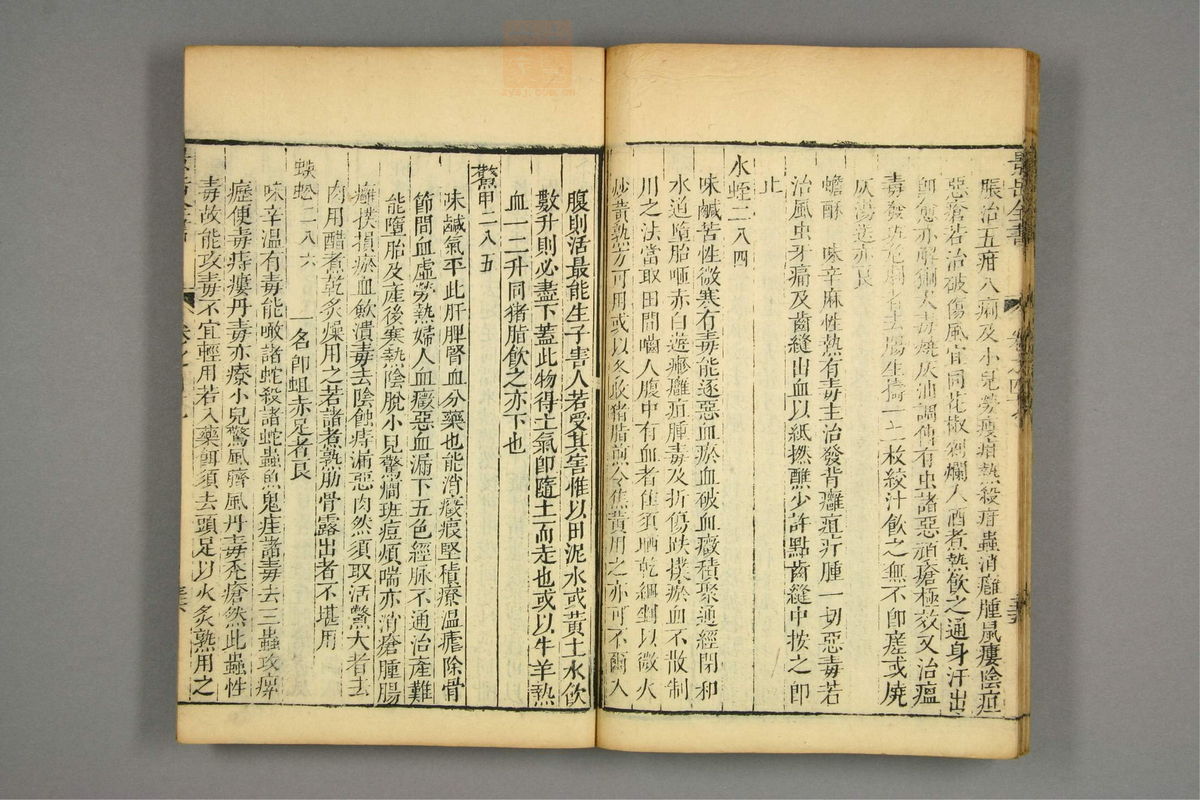 景岳全書
脹治五疳八痢及小兒勞瘦疳熱殺疳蟲消癰腫鼠瘻陰疽
惡瘡若治破傷風宜同花椒剉爛入酒煮熱飲之通身汗出
即愈亦解猘犬毒燒灰油調傅有虫諸惡頑瘡極效又治瘟
毒發斑危劇者去腸生擣一二枚絞汁飲之無不即瘥或燒
灰湯送亦良
蟾酥 味辛麻性熱有毒主治發背癰疽疔腫一切惡毒若
治風虫牙痛及齒縫出血以紙撚蘸少許點齒縫中按之即
止
水蛭二八四
味鹹苦性微寒有毒能逐惡血瘀血破血癥積聚通經閉和
水道墮胎咂赤白遊瘮癰疽腫毒及折傷跌撲瘀血不散制
用之法當取田間嚙人腹中有血者佳須晒乾細剉以微火
炒黃熟方可用或以冬收猪脂煎令焦黃用之亦可不爾入
腹則活最能生子害人若受其害惟以田泥水或黃土水飲
數升則必盡下蓋此物得土氣即隨土而走也或以牛羊熱
血一二升同猪脂飲之亦下也
鱉甲二八五
味鹹氣平此肝脾腎血分藥也能消癥瘕堅積療溫瘧除骨
節間血虛勞熱婦人血癥惡血漏下五色經脉不通治產難
能墮胎及產後寒熱陰脫小兒驚癎斑痘煩喘亦消瘡腫腸
癰撲損瘀血歛潰毒去陰蝕痔漏惡肉然須取活鱉大者去
肉用醋煮乾炙燥用之若諸煮熟肋骨露出者不堪用
蜈蚣二八六 一名即蛆赤足者良
味辛溫有毒能啖諸蛇殺諸蛇蟲魚鬼疰諸毒去三蟲攻瘰
癧便毒痔瘻丹毒亦療小兒驚風臍風丹毒禿瘡然此蟲性
毒故能攻毒不宜輕用若入藥餌須去頭足以火炙熟用之